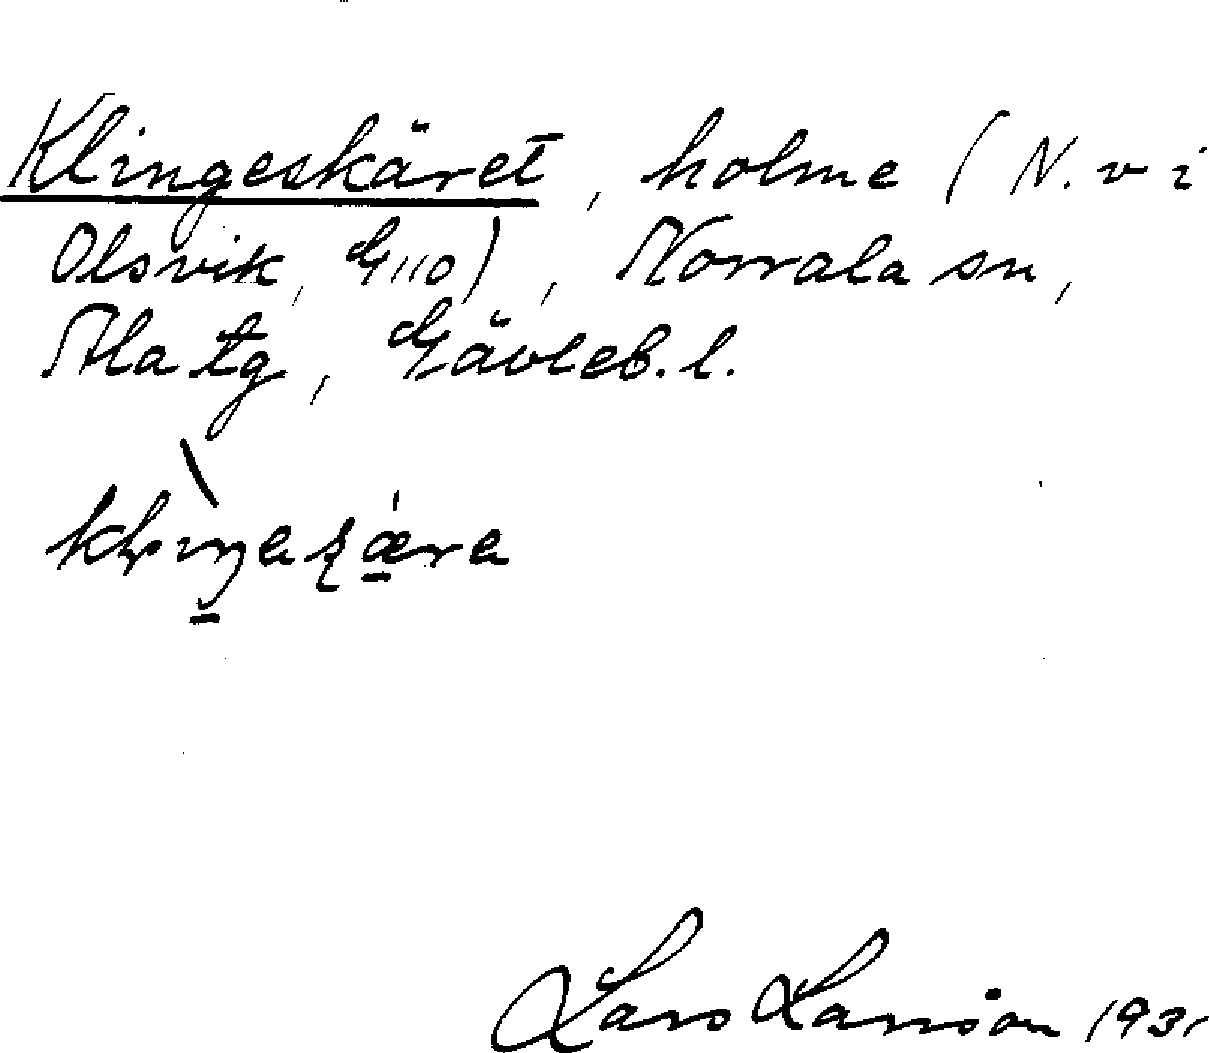 Klingeskäret, holme (N. v i
Olsvik, G110), Norrala sn,
Ala tg, Gävleb. l.
Lars Larsson 1931